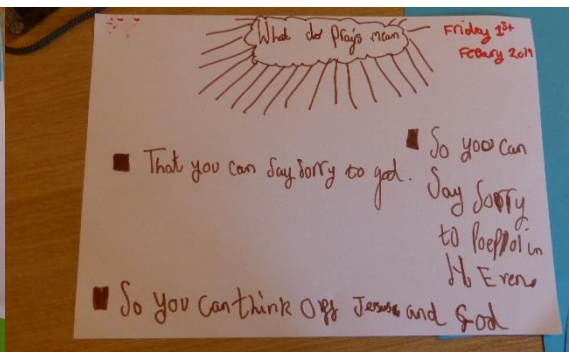 What do prays mean
Friday 1st
Febuary 2019
That you can Say Sorry to god.
So you can
Say Sorry
to Poepol in
H Even
So you can think Off Jesus and God